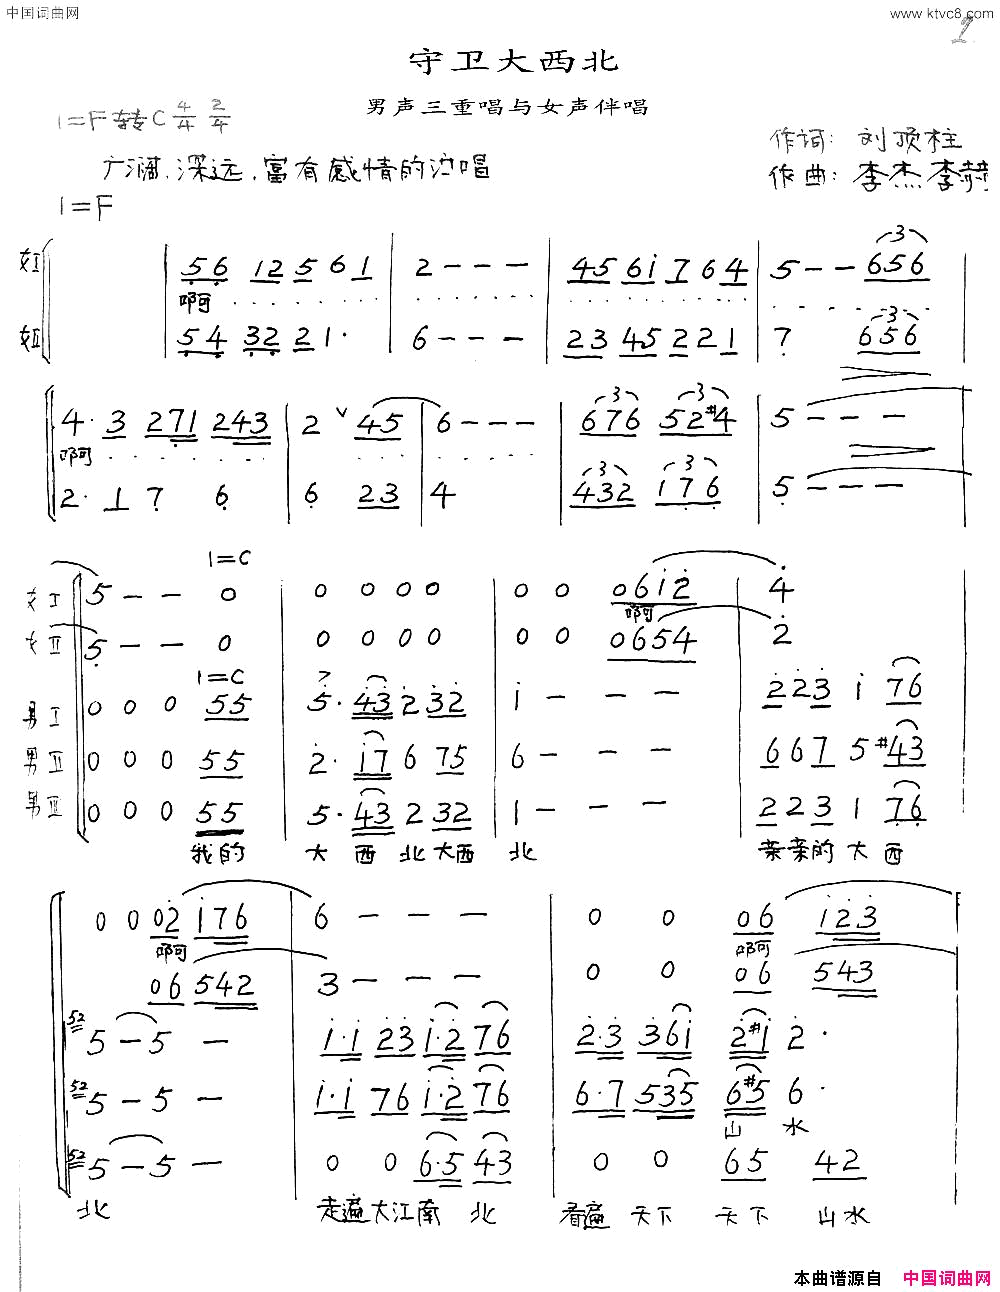 中国词曲网
www.ktvc8.com
守卫大西北
男声三重唱与女声伴唱
1=F转C 4/4 2/4
作词: 刘顶柱
广阔、深远、富有感情的演唱
作曲: 李杰 李赫
1=F
女I 5 6 1 2 5 6 1 | 2 - - - | 4 5 6 1 7 6 4 | 5 - - 6 5 6
啊
女II 5 4 3 2 2 1 · | 6 - - - | 2 3 4 5 2 2 1 | 7 6 5 6
4 · 3 2 7 1 2 4 3 | 2 4 5 | 6 - - - | 6 7 6 5 2 #4 | 5 - - -
啊
2 · 1 7 6 | 6 2 3 | 4 | 4 3 2 1 7 6 | 5 - - -
1=C
女I 5 - - 0 | 0 0 0 0 | 0 0 0 6 1 2 | 4
啊
女II 5 - - 0 | 0 0 0 0 | 0 0 0 6 5 4 | 2
1=C
男I 0 0 0 5 5 | 5 · 4 3 2 3 2 | 1 - - - | 2 2 3 1 7 6
男II 0 0 0 5 5 | 2 · 1 7 6 7 5 | 6 - - - | 6 6 7 5 #4 3
男III 0 0 0 5 5 | 5 · 4 3 2 3 2 | 1 - - - | 2 2 3 1 7 6
我的 大 西 北 大西 北 亲亲的 大 西
0 0 0 2 1 7 6 | 6 - - - | 0 0 0 6 1 2 3
啊 啊
0 6 5 4 2 | 3 - - - | 0 0 0 6 5 4 3
52 5 - 5 - | 1 · 1 2 3 1 · 2 7 6 | 2 · 3 3 6 1 2 #1 2 ·
52 5 - 5 - | 1 · 1 7 6 1 · 2 7 6 | 6 · 7 5 3 5 6 #5 6 ·
山 水
52 5 - 5 - | 0 0 6 · 5 4 3 | 0 0 6 5 4 2
北 走遍大江南 北 看遍 天下 天下 山水
本曲谱源自 中国词曲网